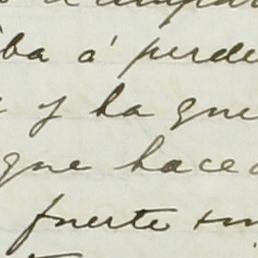 ba á perde
y ha que
que hace
fuerte sin